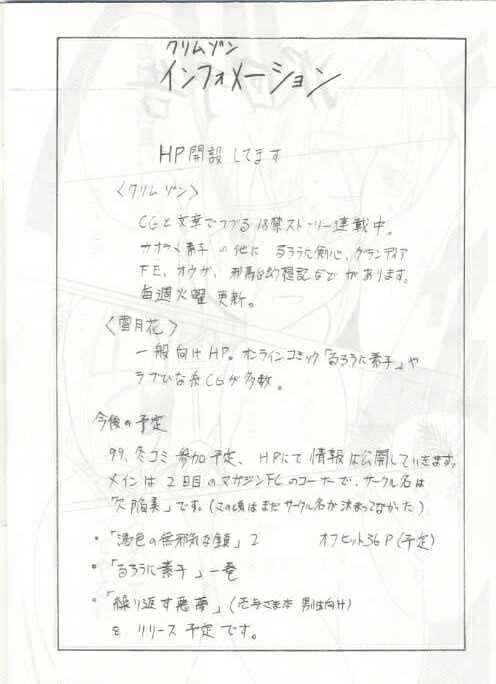 クリムゾン
インフォメーション
HP開設してます
〈クリムゾン〉
CGと文章でつづる18禁ストーリー連載中。
カオラ〈素子 の他に るろうに剣心、グランディア
FE、オウガ、邪馬台幻想記などがあります。
毎週火曜 更新。
〈雪月花〉
一般向けHP。オンラインコミック「るろうに素子」や
ラブひな系CGが多数。
今後の予定
99、冬コミ参加予定、HPにて情報は公開していきます。
メインは2日目のマガジンFCのコーナーで、サークル名は
「欠陥美」です。(この頃はまだサークル名が決まってなかった)
・「褐色の無邪気な鎖」2 オフセット36P(予定)
・「るろうに素子」一巻
・「繰り返す悪夢」(壱与さま本 男性向け)
を リリース予定です。